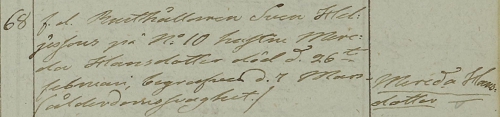 68
f. d. Bruthållaren Sven Hel-
jessons på No 10 hustru Mere-
da Hansdotter död d. 26te
februari, begrafven d. 7 Mars
(ålderdomsvaghet.)
Mereda Hans-
dotter